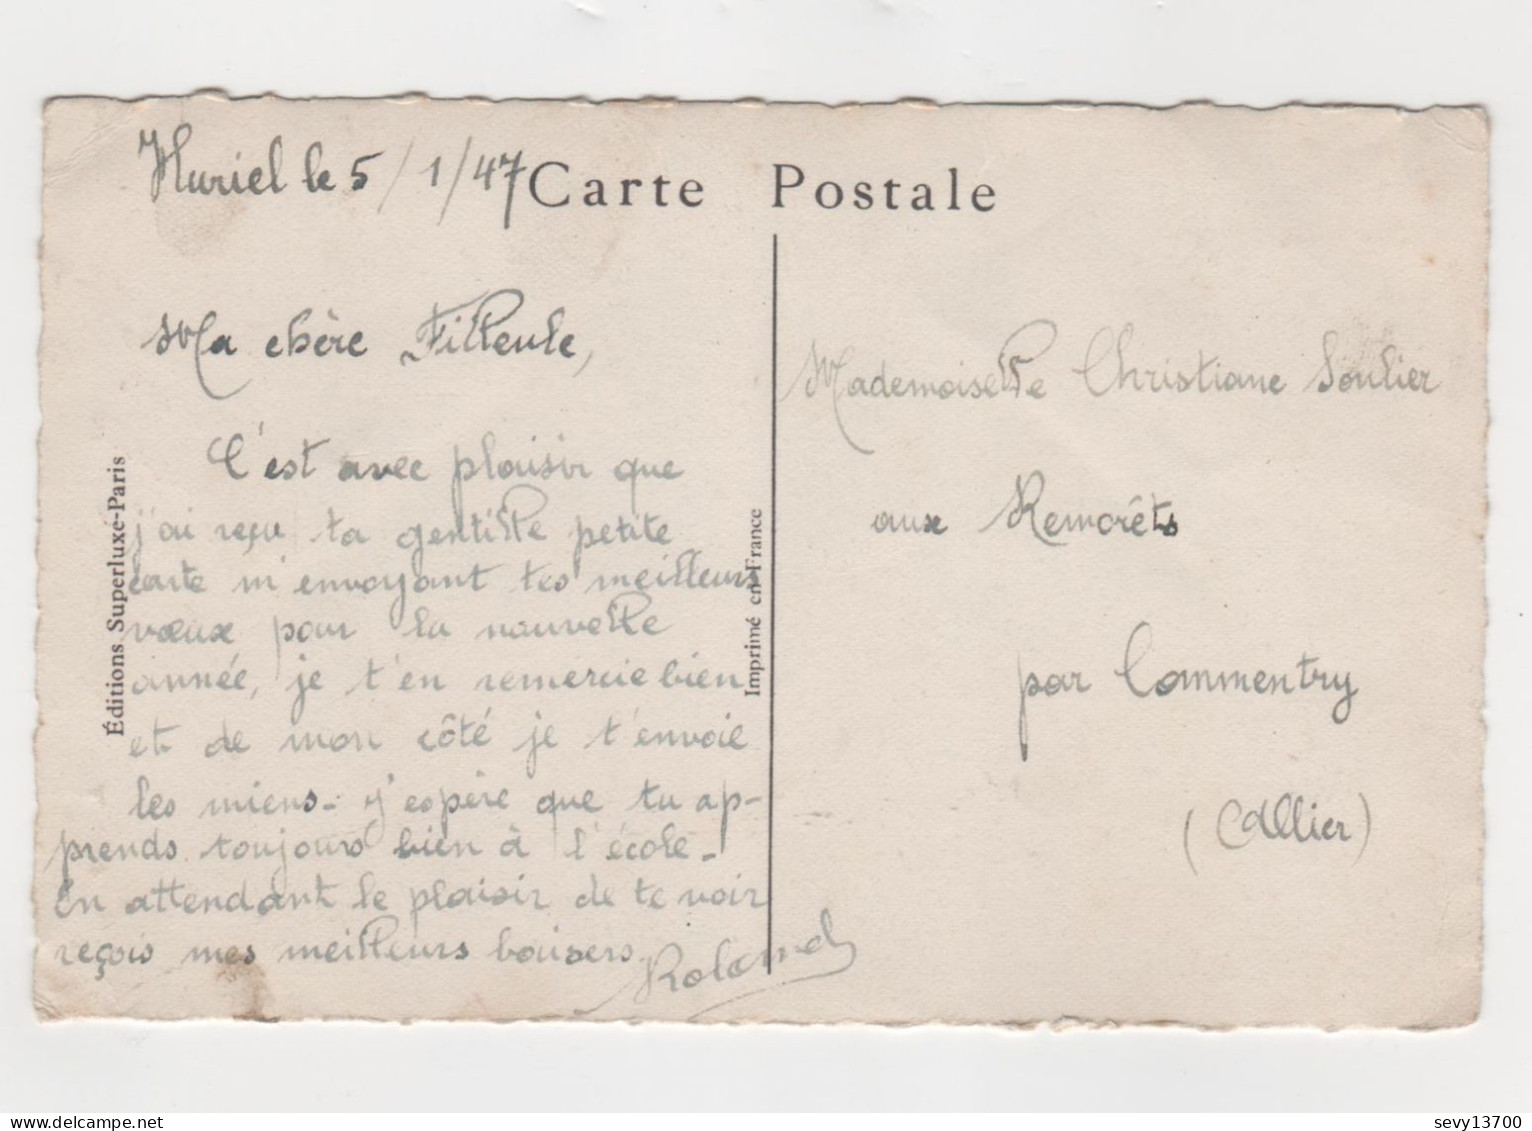 Huriel le 5/1/47
Carte Postale
Ma chère Filleule,
C'est avec plaisir que
j'ai reçu ta gentille petite
carte m'envoyant tes meilleurs
vœux pour la nouvelle
année, je t'en remercie bien
et de mon côté je t'envoie
les miens - j'espère que tu ap-
prends toujours bien à l'école -
En attendant le plaisir de te voir
reçois mes meilleurs baisers.
Roland
Éditions Superluxé-Paris
Imprimé en France
Mademoiselle Christiane Soulier
aux Remorêts
par Commentry
(Allier)
sevy13700